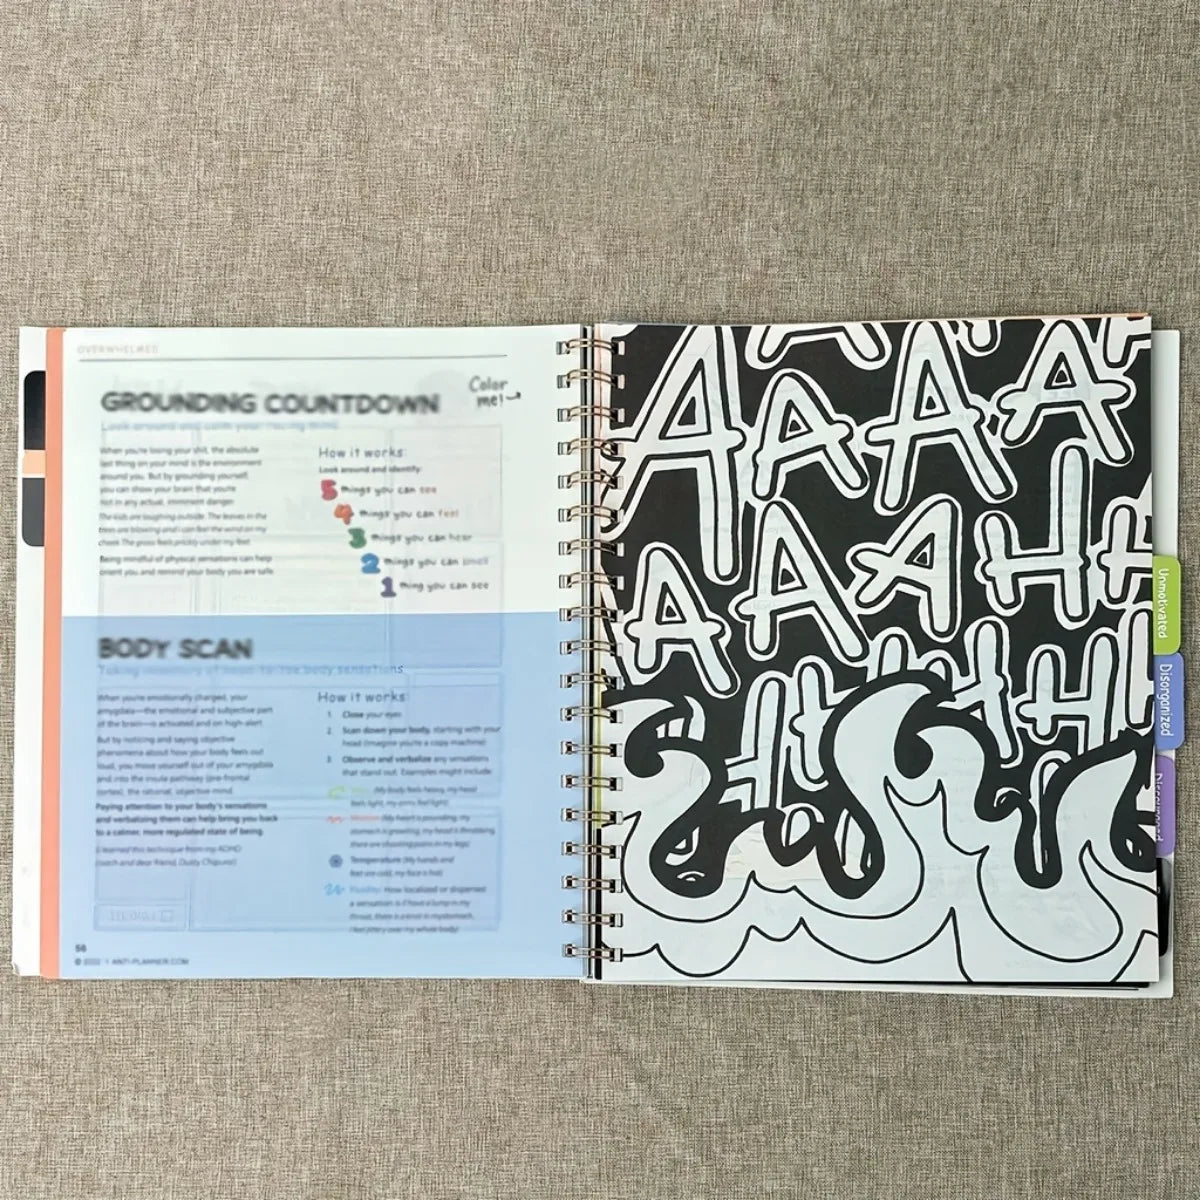 OVERWHELMED
Color
me!
GROUNDING COUNTDOWN
Look around and calm your racing mind
When you're losing your shit, the absolute
last thing on your mind is the environment
around you. But by grounding yourself,
you can show your brain that you're
not in any actual, imminent danger.
The kids are laughing outside. The leaves in the
trees are blowing and I can feel the wind on my
cheek. The grass feels prickly under my feet.
Being mindful of physical sensations can help
orient you and remind your body you are safe.
How it works:
Look around and identify:
5 things you can see
4 things you can feel
3 things you can hear
2 things you can smell
1 thing you can see
BODY SCAN
body sensations
When you're emotionally charged, your
amygdala—the emotional and subjective part
of the brain—is activated and on high-alert.
But by noticing and saying objective
phenomena about how your body feels out
loud, you move yourself out of your amygdala
and into the insula pathway (pre-frontal
cortex), the rational, objective mind.
Paying attention to your body's sensations
and verbalizing them can help bring you back
to a calmer, more regulated state of being.
I learned this technique from my ADHD
coach and dear friend,
How it works:
1 Close your eyes
2 Scan down your body, starting with your
head (imagine you're a copy machine)
3 Observe and verbalize any sensations
that stand out. Examples might include:
(My body feels heavy, my head
feels light, my arms feel tight)
(My heart is pounding, my
stomach is growling, my head is throbbing,
there are shooting pains in my legs)
Temperature (My hands and
feet are cold, my face is hot)
Fluidity: How localized or dispersed
a sensation is (I have a lump in my
throat, there is a knot in my stomach,
I feel jittery over my whole body)
56
© 2022 | ANTI-PLANNER.COM
A A A A
A A A A
A A A H H
H H H H
Unmotivated
Disorganized
Discouraged